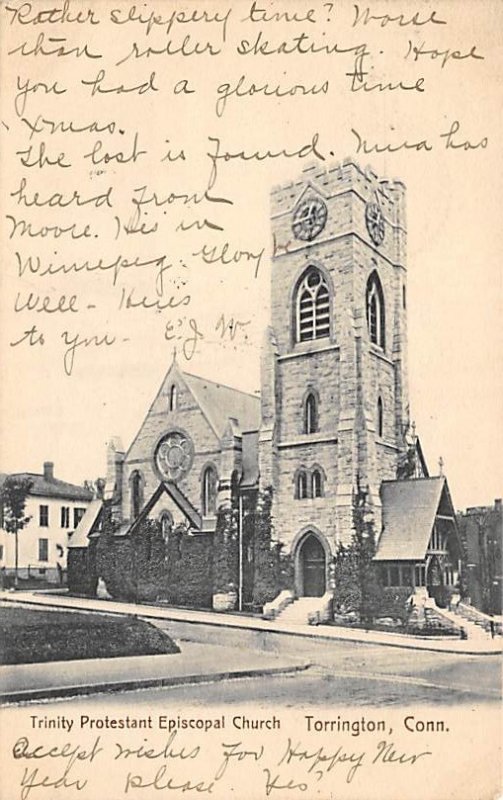 Rather slippery time? Worse
than roller skating. Hope
you had a glorious time
Xmas.
The lost is found. Nina has
heard from
Moore. His in
Winnepeg. Glory
Well - Heres
to you - E. J. W.
Trinity Protestant Episcopal Church Torrington, Conn.
Accept wishes for Happy New
Year please. Yes?